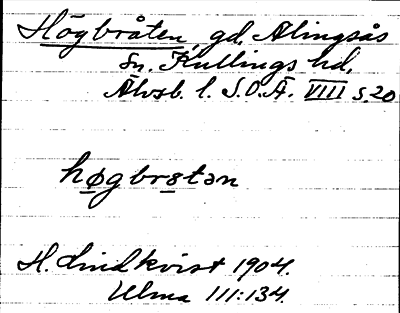 Högbråten, gd. Alingsås
sn. Kullings hd.
Älvsb. l. S.O.Ä. VIII s.20
høgbrɑtən
H. Lindkvist 1904.
Ulma 111:134.